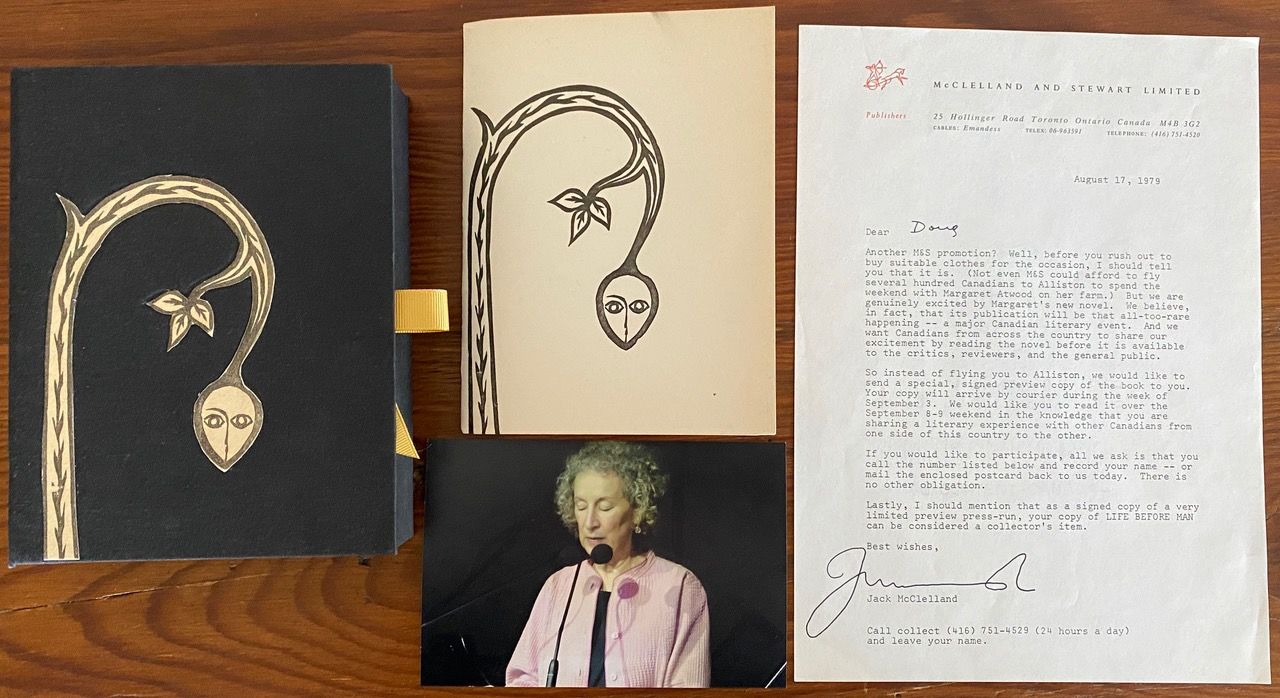 McCLELLAND AND STEWART LIMITED
Publishers
25 Hollinger Road Toronto Ontario Canada M4B 3G2
CABLES: Emandess TELEX: 06-963591 TELEPHONE: (416) 751-4520
August 17, 1979
Dear Doug
Another M&S promotion? Well, before you rush out to
buy suitable clothes for the occasion, I should tell
you that it is. (Not even M&S could afford to fly
several hundred Canadians to Alliston to spend the
weekend with Margaret Atwood on her farm.) But we are
genuinely excited by Margaret's new novel. We believe,
in fact, that its publication will be that all-too-rare
happening -- a major Canadian literary event. And we
want Canadians from across the country to share our
excitement by reading the novel before it is available
to the critics, reviewers, and the general public.
So instead of flying you to Alliston, we would like to
send a special, signed preview copy of the book to you.
Your copy will arrive by courier during the week of
September 3. We would like you to read it over the
September 8-9 weekend in the knowledge that you are
sharing a literary experience with other Canadians from
one side of this country to the other.
If you would like to participate, all we ask is that you
call the number listed below and record your name -- or
mail the enclosed postcard back to us today. There is
no other obligation.
Lastly, I should mention that as a signed copy of a very
limited preview press-run, your copy of LIFE BEFORE MAN
can be considered a collector's item.
Best wishes,
Jack McClelland
Call collect (416) 751-4529 (24 hours a day)
and leave your name.